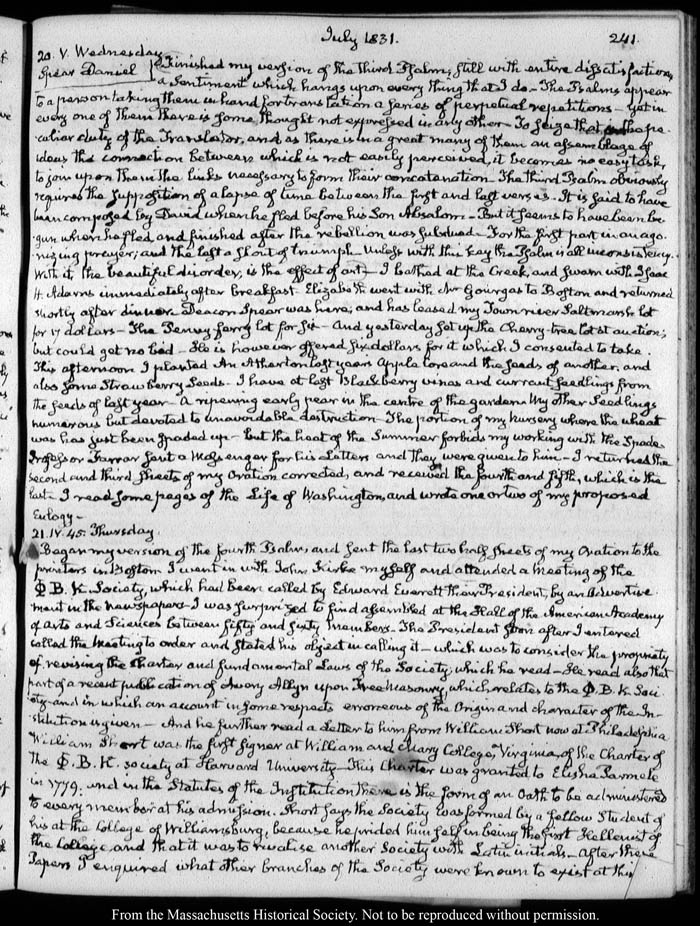 July 1831.
241.
20. V. Wednesday
Spear Daniel
Finished my version of the third Psalm; still with entire dissatisfaction,
a sentiment which hangs upon every thing that I do. The Psalms appear
to a person taking them in hand for translation a series of perpetual repetitions - yet in
every one of them there is some thought not expressed in any other. To seize that is the pe-
culiar duty of the Translator, and as there is in a great many of them an assemblage of
ideas the connection between which is not easily perceived, it becomes no easy task,
to join upon them the links necessary to form their concatenation. The third Psalm obviously
requires the supposition of a lapse of time between the first and last verses. It is said to have
been composed by David when he fled before his Son Absalom - But it seems to have been be-
gun when he fled, and finished after the rebellion was subdued - For the first part is an ago-
nizing prayer; and the last a shout of triumph. Unless with this key the Psalm is all inconsistency.
With it, the beautiful disorder, is the effect of art - I bathed at the Creek, and swam with Isaac
H. Adams immediately after breakfast. Elizabeth went with Mr Gourgas to Boston and returned
shortly after dinner. Deacon Spear was here, and has leased my Town river Saltmarsh lot
for 17 dollars - The Penny ferry lot for six - And yesterday set up the Cherry-tree lot at auction;
but could get no bid - He is however offered six dollars for it which I consented to take.
This afternoon I planted An Atherton last years Apple core and the seeds of another, and
also some Strawberry seeds - I have at last Blackberry vines and currant seedlings from
the seeds of last year - A ripening early pear in the centre of the garden. My other Seedlings
numerous but devoted to unavoidable destruction - The portion of my Nursery where the wheat
was has just been spaded up - but the heat of the Summer forbids my working with the Spade.
Professor Farrar sent a Messenger for his Letters and they were given to him - I returned the
second and third sheets of my Oration corrected, and received the fourth and fifth, which is the
last. I read some pages of the Life of Washington, and wrote one or two of my proposed
Eulogy -
21. IV. 45. Thursday.
Began my version of the fourth Psalm, and sent the last two half sheets of my Oration to the
printers in Boston. I went in with John Kirke myself and attended a Meeting of the
Φ. B. K. Society, which had been called by Edward Everett their President, by an advertise-
ment in the newspapers - I was surprized to find assembled at the Hall of the American Academy
of Arts and Sciences between fifty and sixty members. The President soon after I entered
called the meeting to order and stated his object in calling it - which was to consider the propriety
of revising the Charter and fundamental Laws of the Society; which he read - He read also that
part of a recent publication of Avery Allyn upon Freemasonry, which relates to the Φ. B. K. Soci-
ety and in which an account in some respects erroneous of the Origin and character of the In-
stitution is given - And he further read a Letter to him from William Short now at Philadelphia
William Short was the first signer at William and Mary College, Virginia, of the Charter of
the Φ. B. K. society at Harvard University - This Charter was granted to Elisha Parmele
in 1779; and in the Statutes of the Institution there is the form of an Oath to be administered
to every member at his admission. Short says the Society was formed by a fellow Student of
his at the College of Williamsburg, because he prided himself in being the first Hellenist of
the College, and that it was to rivalise another Society with Latin initials - After these
Papers I enquired what other branches of the Society were known to exist at this
From the Massachusetts Historical Society. Not to be reproduced without permission.